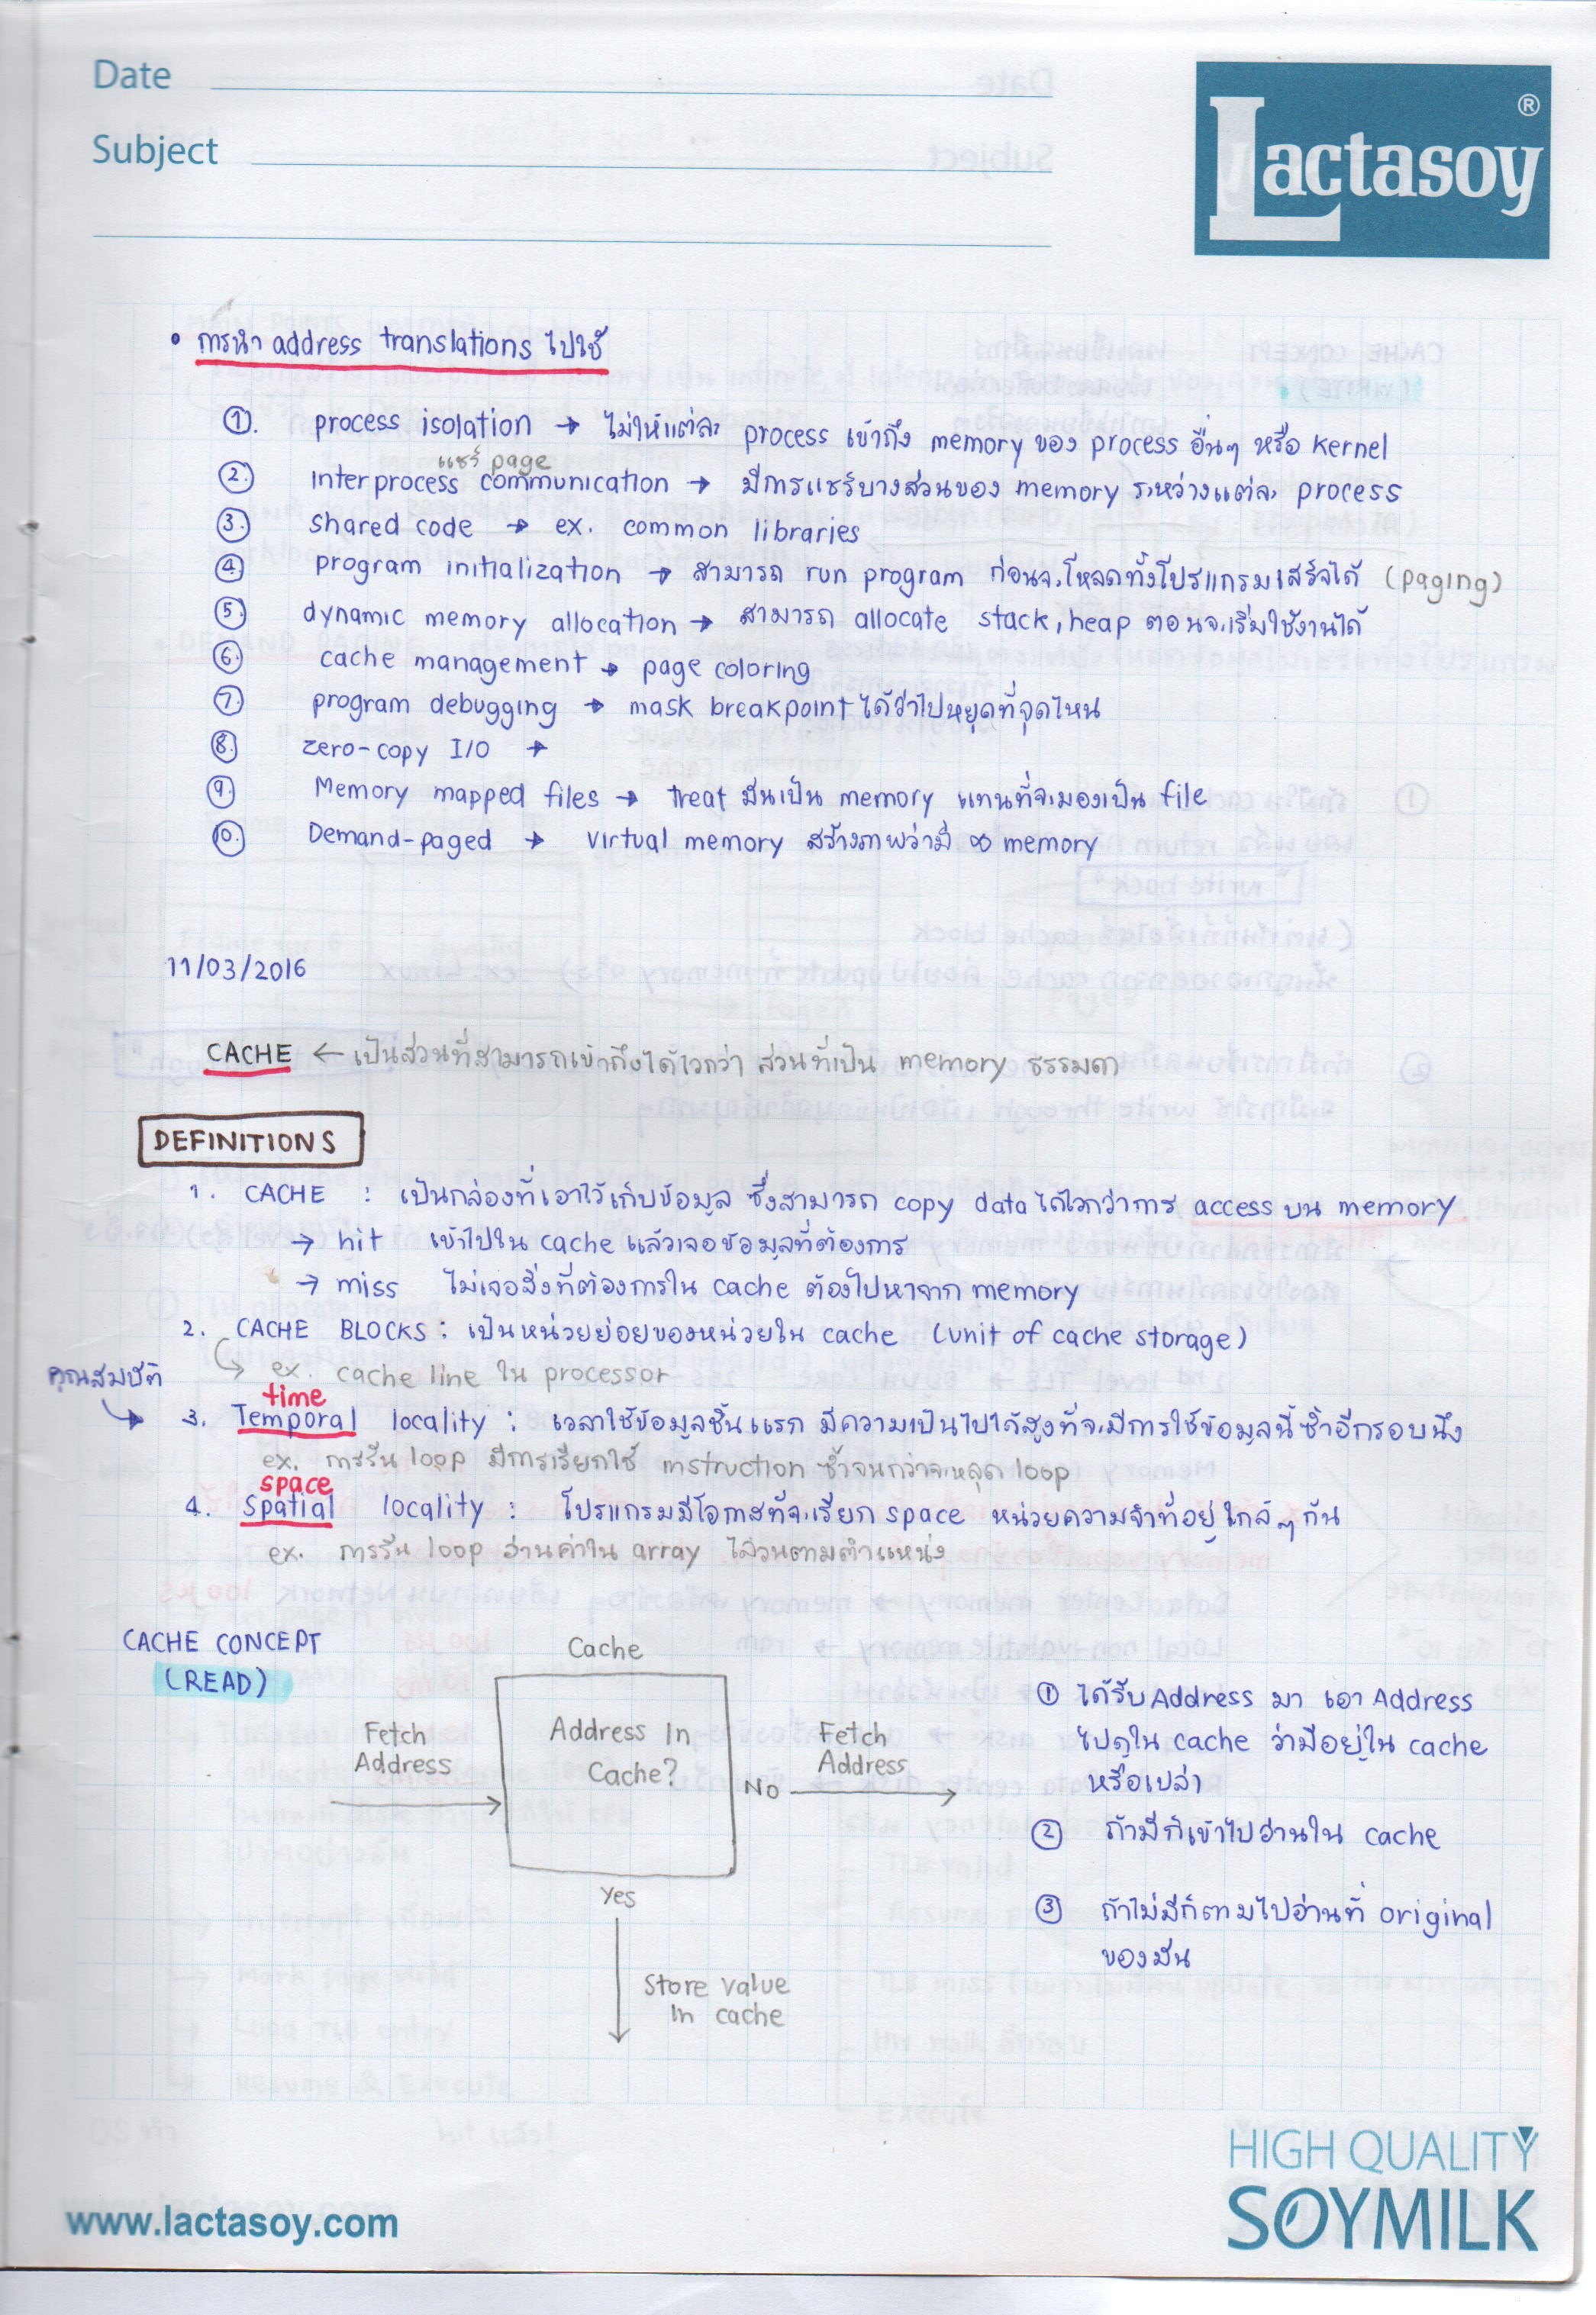 Date
Subject
Lactasoy®
• การนำ address translations ไปใช้
①. process isolation → ไม่ให้แต่ละ process เข้าถึง memory ของ process อื่นๆ หรือ kernel
แชร์ page
② interprocess communication → มีการแชร์บางส่วนของ memory ระหว่างแต่ละ process
③. shared code → ex. common libraries
④. program initialization → สามารถ run program ก่อนจะโหลดทั้งโปรแกรมเสร็จได้ (paging)
⑤ dynamic memory allocation → สามารถ allocate stack, heap ตอนจะเริ่มใช้งานได้
⑥. cache management → page coloring
⑦. program debugging → mask breakpoint ได้ว่าไปหยุดที่จุดไหน
⑧. zero-copy I/O →
⑨. Memory mapped files → treat มันเป็น memory แทนที่จะมองเป็น file
⑩. Demand-paged → virtual memory สร้างภาพว่ามี ∞ memory
11/03/2016
CACHE ← เป็นส่วนที่สามารถเข้าถึงได้ไวกว่า ส่วนที่เป็น memory ธรรมดา
DEFINITIONS
1. CACHE : เป็นกล่องที่เอาไว้เก็บข้อมูล ซึ่งสามารถ copy data ได้ไวกว่าการ access บน memory
→ hit เข้าไปใน cache แล้วเจอข้อมูลที่ต้องการ
→ miss ไม่เจอสิ่งที่ต้องการใน cache ต้องไปหาจาก memory
2. CACHE BLOCKS : เป็นหน่วยย่อยของหน่วยใน cache (unit of cache storage)
ex. cache line ใน processor
คุณสมบัติ
time
→ 3. Temporal locality : เวลาใช้ข้อมูลชิ้นแรก มีความเป็นไปได้สูงที่จะมีการใช้ข้อมูลนี้ซ้ำอีกรอบนึง
ex. การรัน loop มีการเรียกใช้ instruction ซ้ำจนกว่าจะหลุด loop
space
4. Spatial locality : โปรแกรมมีโอกาสที่จะเรียก space หน่วยความจำที่อยู่ใกล้ๆกัน
ex. การรัน loop อ่านค่าใน array ไล่วนตามตำแหน่ง
CACHE CONCEPT
(READ)
Cache
Fetch
Address
Address In
Cache?
No
Fetch
Address
Yes
Store value
In cache
① ได้รับ Address มา เอา Address
ไปดูใน cache ว่ามีอยู่ใน cache
หรือเปล่า
② ถ้ามีก็เข้าไปอ่านใน cache
③ ถ้าไม่มีก็ตามไปอ่านที่ original
ของมัน
www.lactasoy.com
HIGH QUALITY
SOYMILK